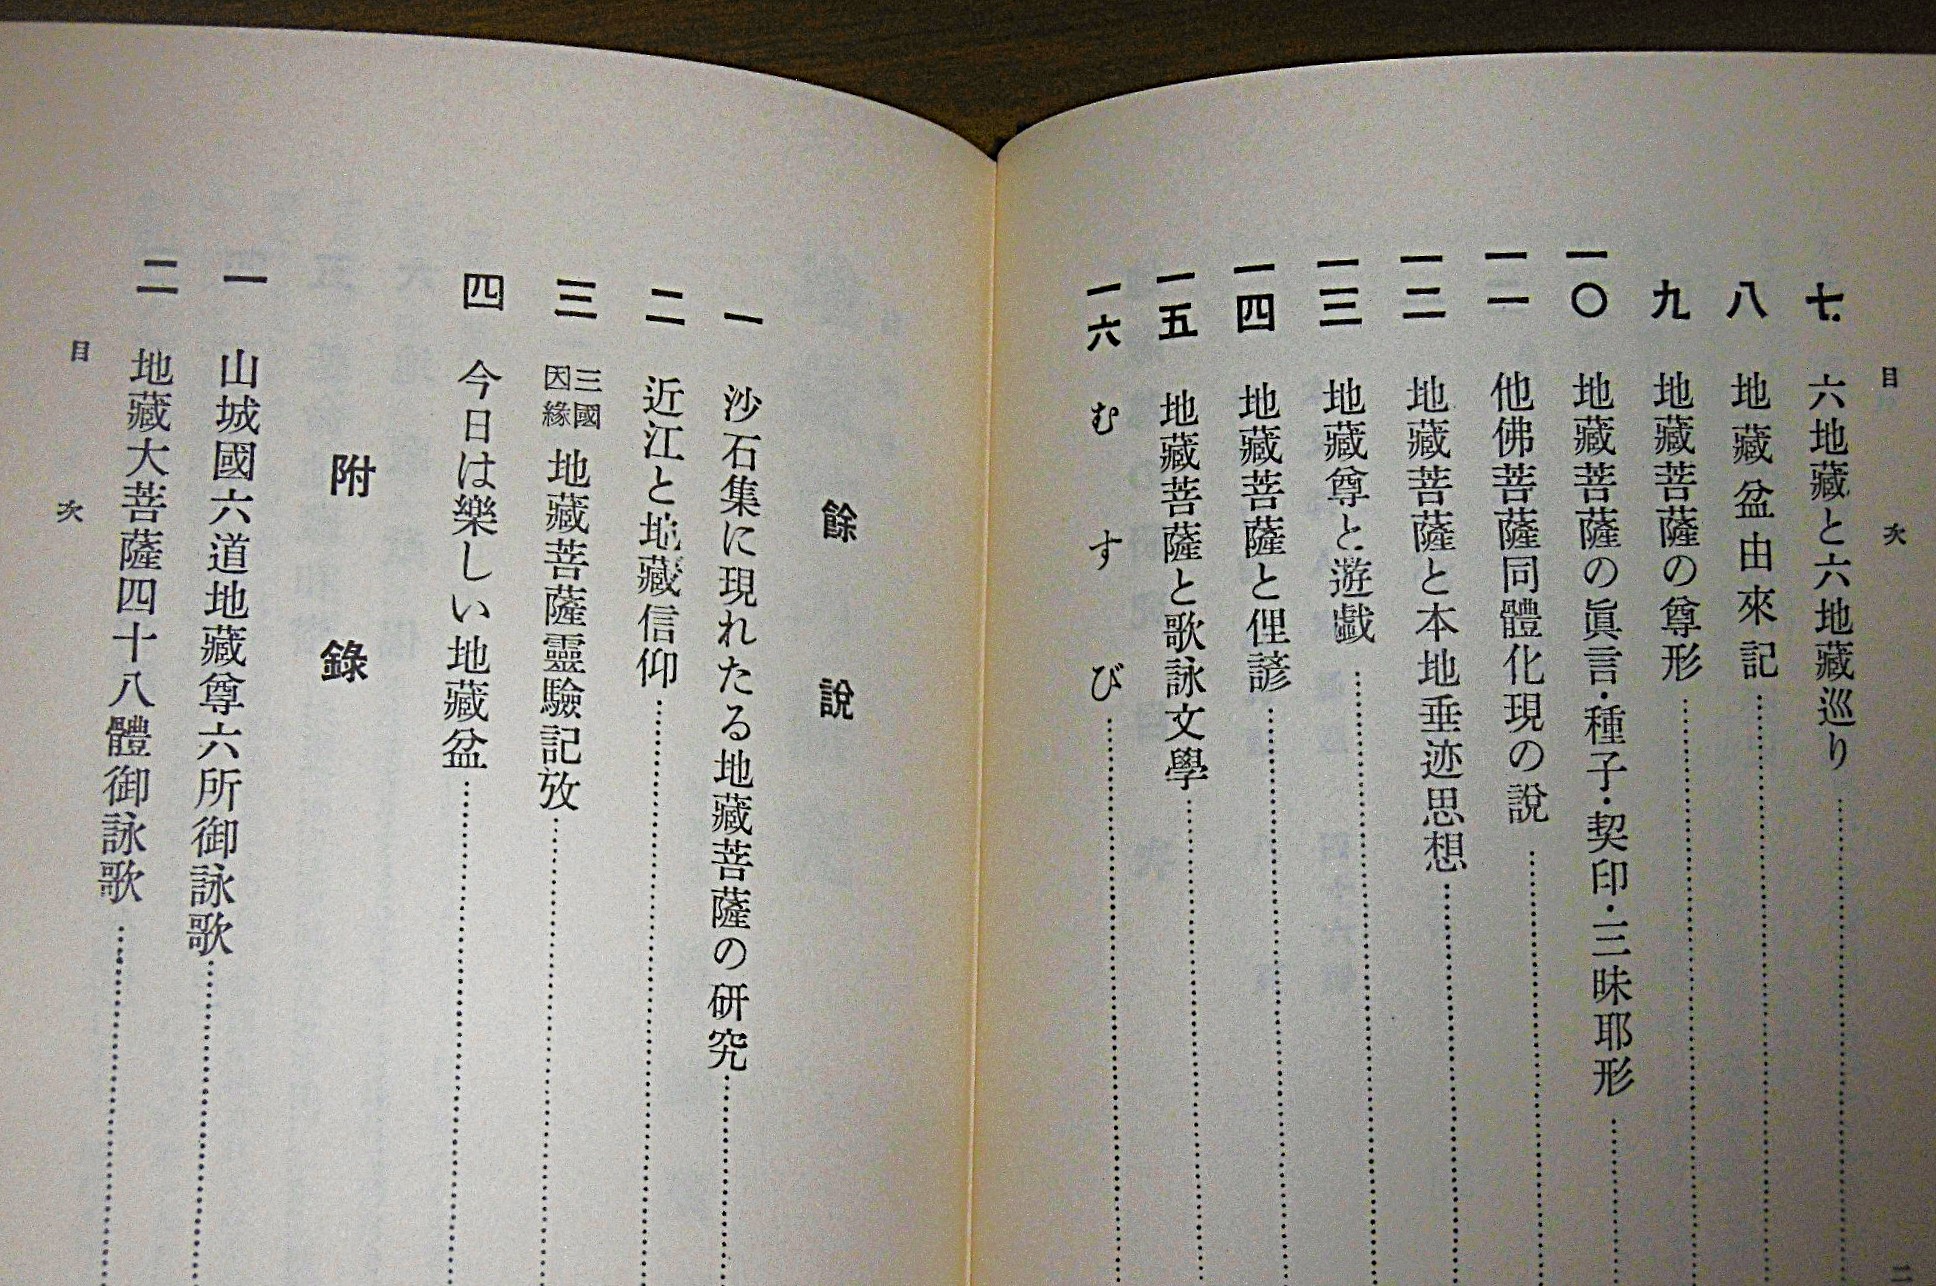 目次
七 六地藏と六地藏巡り
八 地藏盆由來記
九 地藏菩薩の尊形
一〇 地藏菩薩の眞言・種子・契印・三昧耶形
一一 他佛菩薩同體化現の說
一二 地藏菩薩と本地垂迹思想
一三 地藏尊と遊戲
一四 地藏菩薩と俚諺
一五 地藏菩薩と歌詠文學
一六 むすび
餘說
一 沙石集に現れたる地藏菩薩の研究
二 近江と地藏信仰
三 三國因緣 地藏菩薩靈驗記攷
四 今日は樂しい地藏盆
附錄
一 山城國六道地藏尊六所御詠歌
二 地藏大菩薩四十八體御詠歌
目次